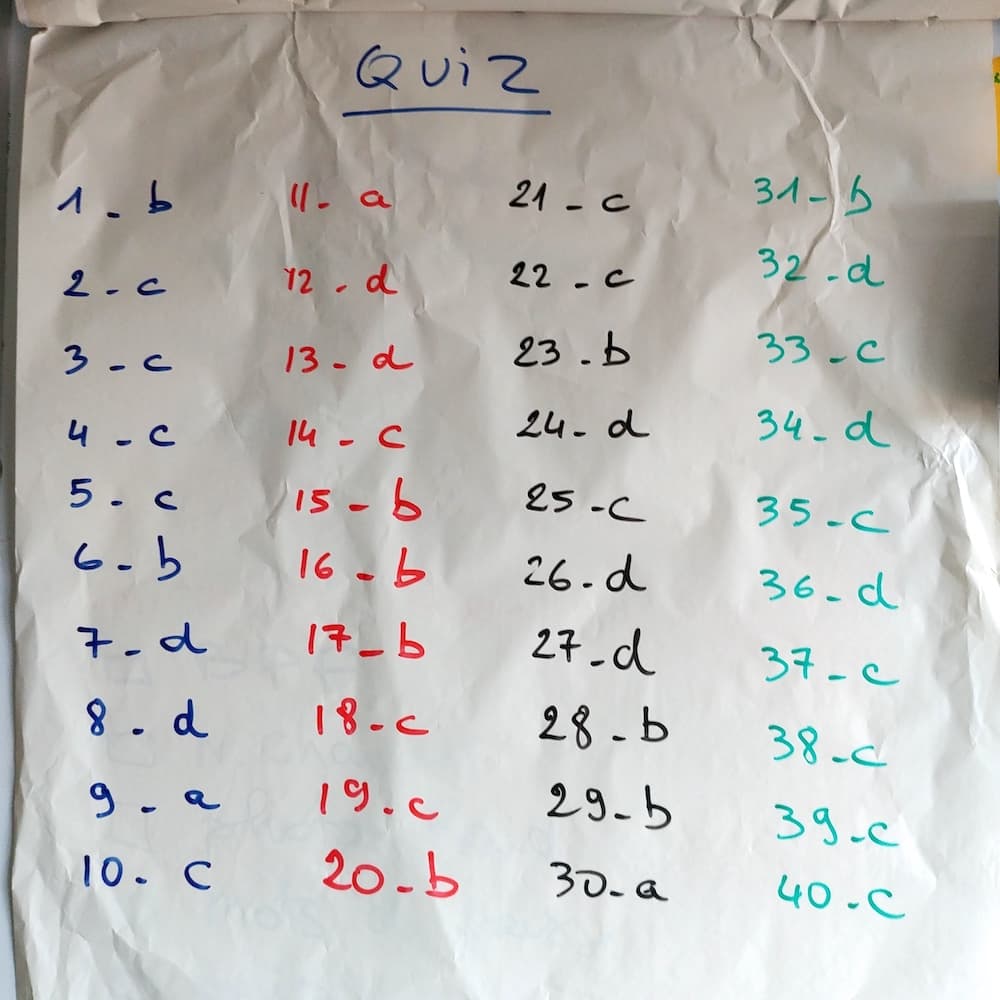 QUiZ
1 - b
2 - c
3 - c
4 - c
5 - c
6 - b
7 - d
8 - d
9 - a
10 - c
11 - a
12 - d
13 - d
14 - c
15 - b
16 - b
17 - b
18 - c
19 - c
20 - b
21 - c
22 - c
23 - b
24 - d
25 - c
26 - d
27 - d
28 - b
29 - b
30 - a
31 - b
32 - d
33 - c
34 - d
35 - c
36 - d
37 - c
38 - c
39 - c
40 - c